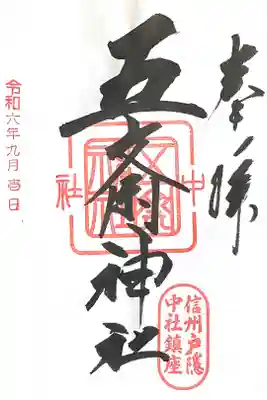 奉拝
五斎神社
中社
信州戸隠
中社鎮座
令和六年九月日